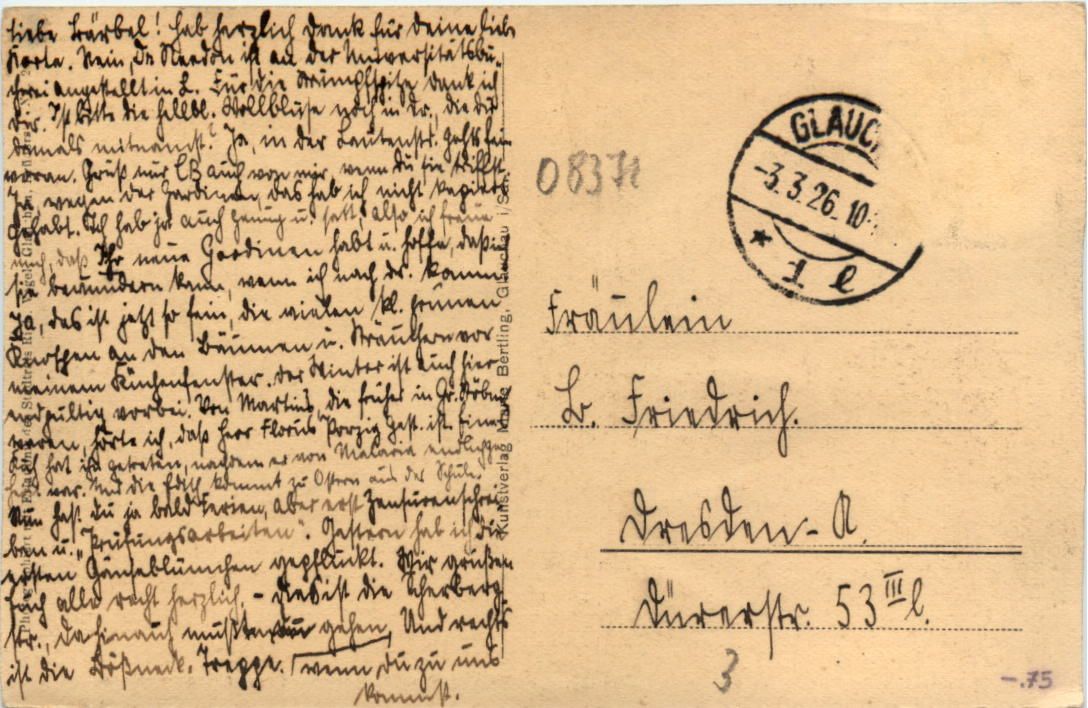 Liebe Bärbel! Hab herzlich Dank für Deine liebe
Karte. Nein, Dr. ist an der Universitätsbü-
cherei angestellt in L. Für die dank ich
Dir. Ist bitte die hellbl. Wollbluse noch in Dr., die du
damals mitnahmst? Ja, in der Lautenstr. gehts fein
voran. Grüß nur auch von mir, wenn du sie triffst.
Ja, wegen der Gardinen, das hab ich nicht kapiert
gehabt. Ich hab ja auch genug u. also ich freue
mich, daß Ihr neue Gardinen habt u. hoffe, daß ich
sie bewundern kann, wenn ich nach Dr. komme.
Ja, das ist jetzt so fein, die vielen kl. grünen
Knospen an den Bäumen u. Sträuchern vor
meinem Küchenfenster. Der Winter ist auch hier
endgültig vorbei. Von Martins, die früher in Gr. Döbern
waren, hörte ich, daß Herr Florus Porzig gest. ist. Eine
Kuh hat ihn getreten, nachdem er von Malaria endlich
war. Und die Edith kommt zu Ostern aus der Schule.
Nun hast du ja bald Ferien, aber erst Zensurenschrei-
ben u. "Prüfungsarbeiten". Gestern hab ich die
ersten Gänseblümchen gepflückt. Wir grüßen
Euch alle recht herzlich. – Dies ist die Scherberg-
str., da hinauf mußt du gehen, Und rechts
ist die Bößneck. Treppe. wenn du zu uns
kommst.
Kunstverlag Bertling, Glauchau i/Sa.
GLAUC
-3.3.26. 10-
* 1 l
08371
Fräulein
B. Friedrich.
Dresden - A.
Dürerstr. 53 III l.
3
-.75